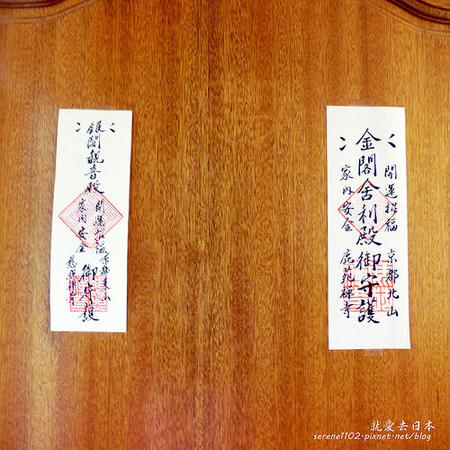 開運招福 京都北山
金閣舍利殿御守護
家内安全 鹿苑禅寺
銀閣觀音殿
開運招福
家内安全
御守護
就愛去日本
serene1102.pixnet.net/blog